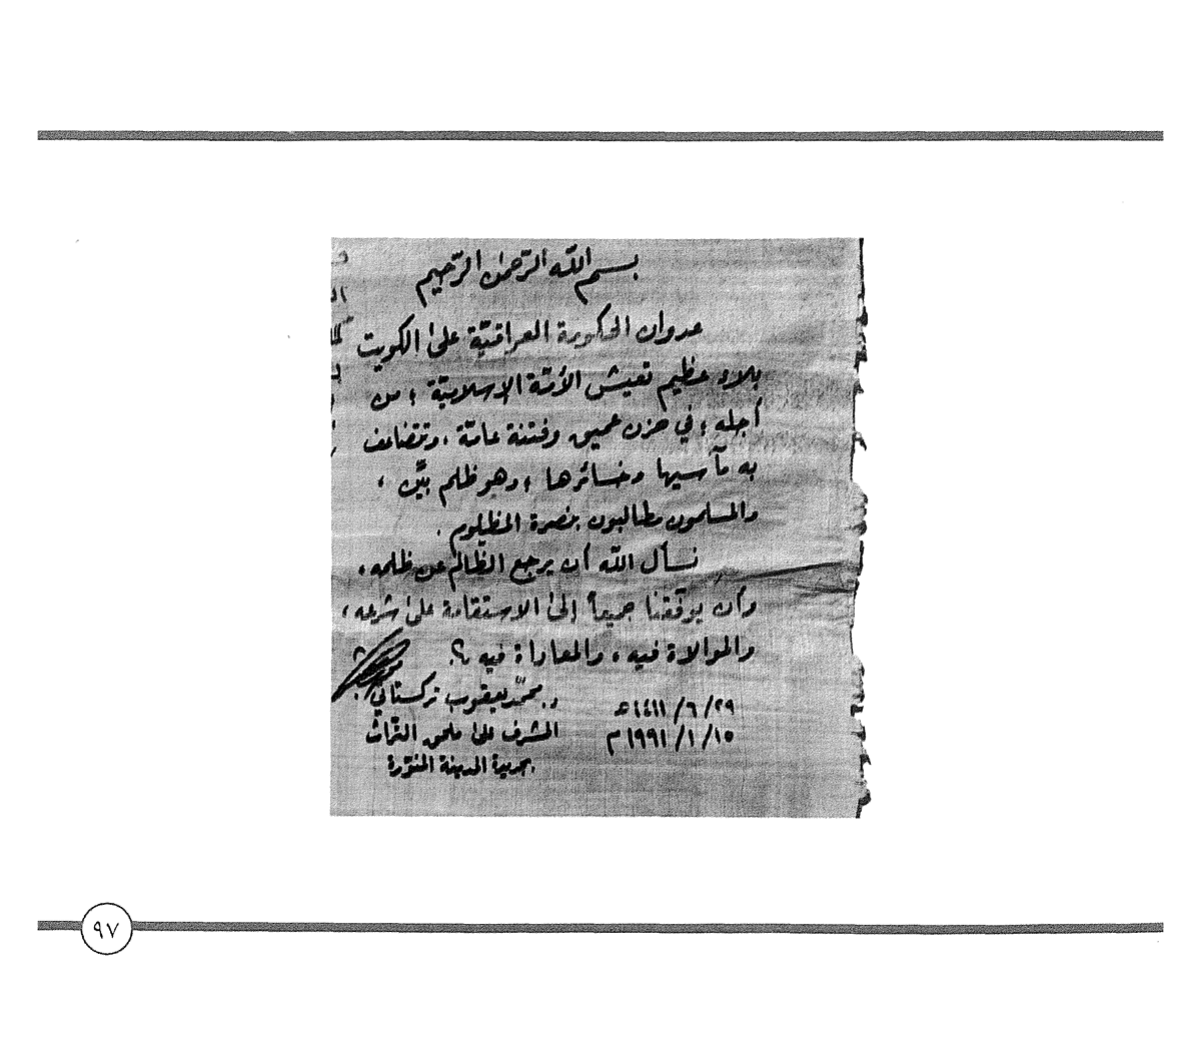 بسم الله الرّحمن الرّحيم
عدوان الحكومة العراقيّة على الكويت
بلاء عظيم تعيش الأمّة الإسلاميّة ، من
أجله ، في حزن عميق وفتنة عامّة ، وتتضاعف
به مآسيها وخسائرها ، وهو ظلم بيّن ،
والمسلمون مطالبون بنصرة المظلوم .
نسأل الله أن يرجع الظالم عن ظلمه ،
وأن يوفّقنا جميعاً إلى الاستقامة على شرعه ،
والموالاة فيه ، والمعاداة فيه .
د. محمّد يعقوب تركستاني
٢٩ / ٦ / ١٤١١هـ
المشرف على ملحق التّراث
١٥ / ١ / ١٩٩١م
بجريدة المدينة المنوّرة
٩٧